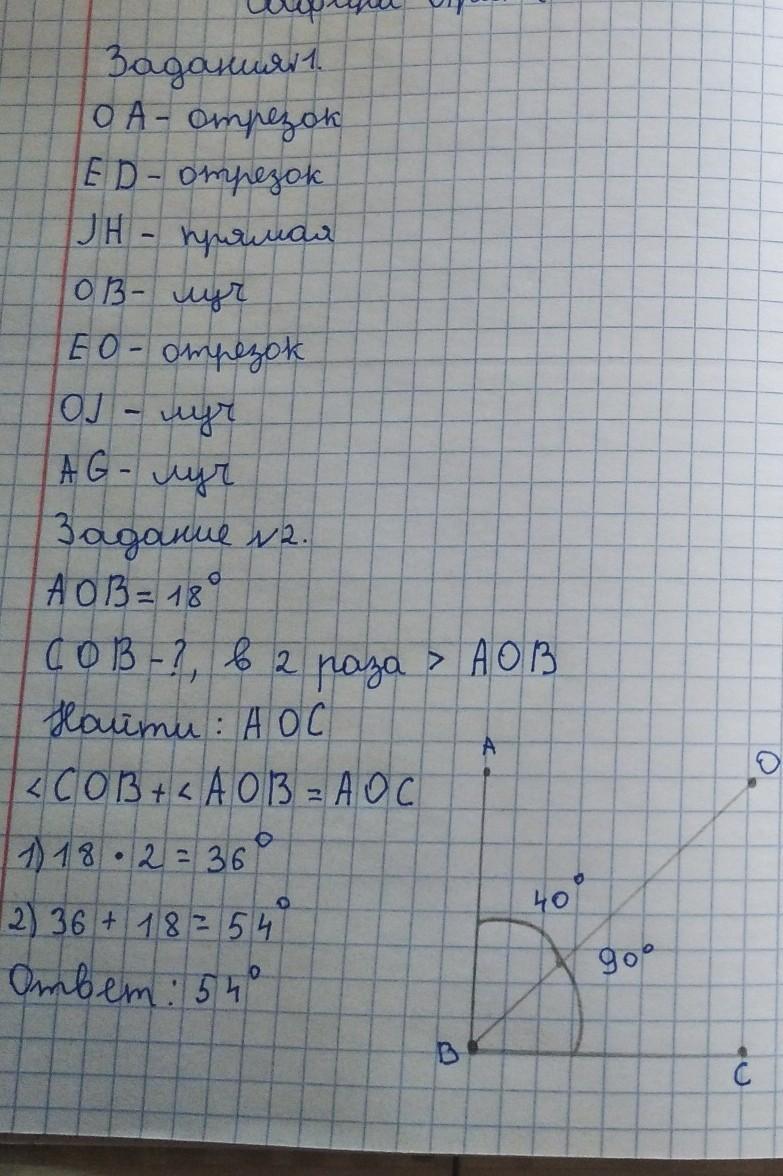 Задания №1.
OA - отрезок
ED - отрезок
JH - прямая
OB - луч
EO - отрезок
OJ - луч
AG - луч
Задание №2.
AOB = 18°
COB - ?, в 2 раза > AOB
Найти: AOC
<COB + <AOB = AOC
1) 18 · 2 = 36°
2) 36 + 18 = 54°
Ответ: 54°
A
O
40°
90°
B
C